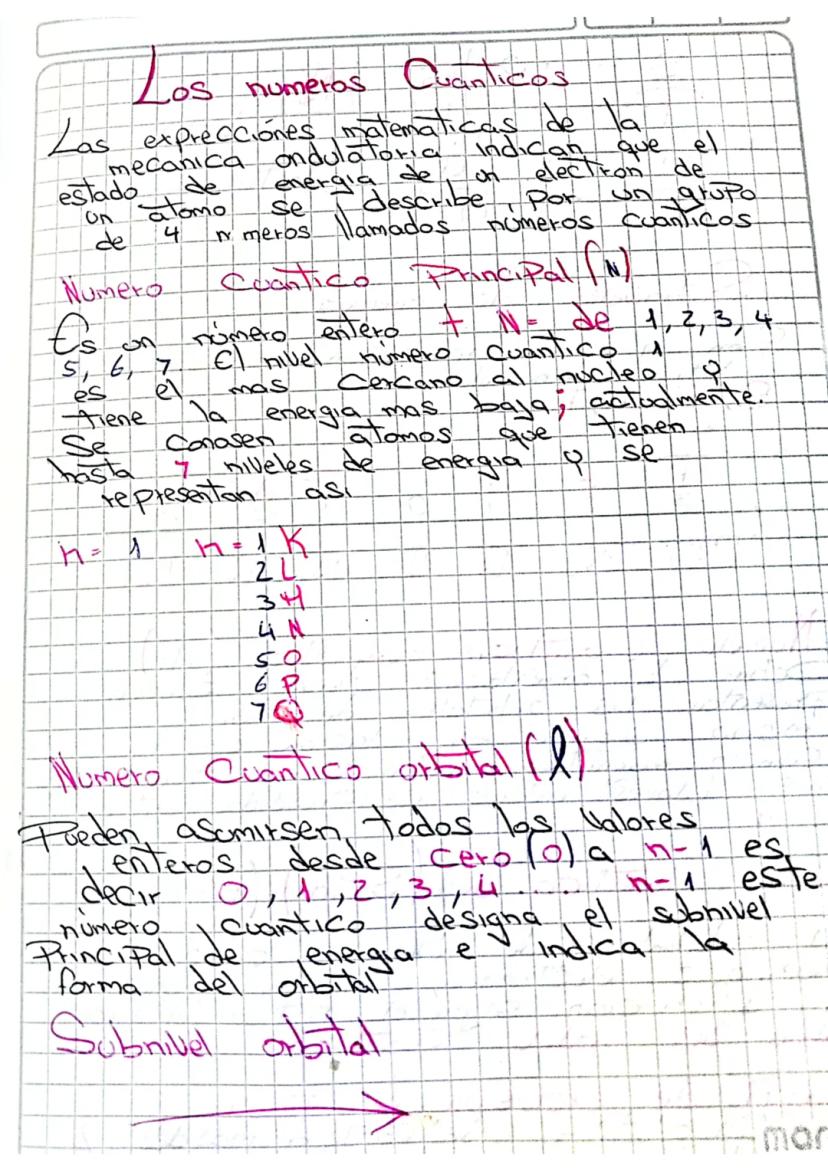 Los numeros Cuanticos
Las expreccíones matemáticas de la
mecanica ondulatoria indican que el
estado de energia de un electron de
un átomo se describe por un grupo
de 4 n meros llamados números cuánticos
Numero Cuántico Principal (N)
Es un número entero + N= de 1, 2, 3, 4
5, 6, 7 El nivel número cuantico 1
es el mas cercano al nucleo y
tiene la energia mas baja; actualmente.
Se conosen átomos que tienen
hasta 7 niveles de energia y se
representan asi
n= 1 n= 1 K
2 L
3 M
4 N
5 O
6 P
7 Q
Numero Cuántico orbital (l)
Pueden asumirsen todos los valores
enteros desde cero (0) a n-1 es
decir 0, 1, 2, 3, 4 ..... n-1 este
número cuantico designa el subnivel
Principal de energia e indica la
forma del orbital
Subnivel orbital
mar